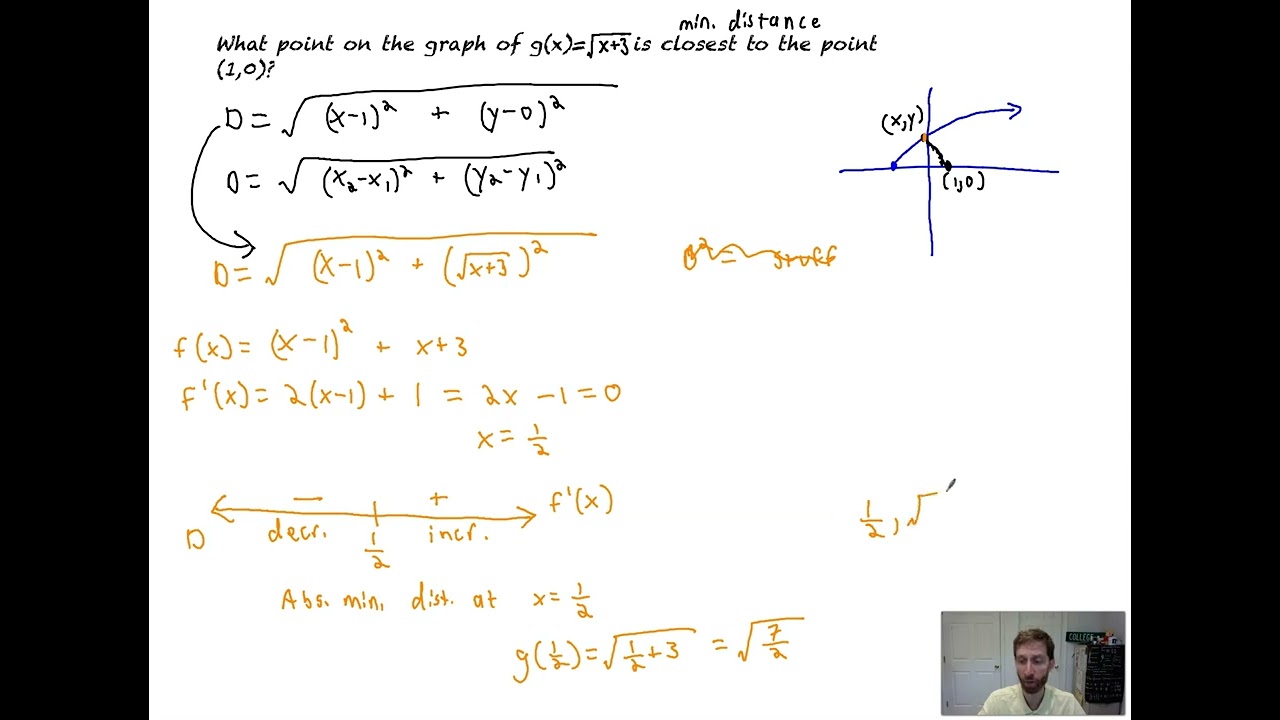 min. distance
What point on the graph of g(x)=√x+3 is closest to the point
(1,0)?
D = √(x-1)² + (y-0)²
(x,y)
D = √(x₂-x₁)² + (y₂-y₁)²
(1,0)
D = √(x-1)² + (√x+3)²
D² = stuff
f(x) = (x-1)² + x+3
f'(x) = 2(x-1) + 1 = 2x - 1 = 0
x = 1/2
− + f'(x)
D decr. 1/2 incr.
1/2, √
Abs. min. dist. at x = 1/2
g(1/2) = √1/2+3 = √7/2
COLLEGE